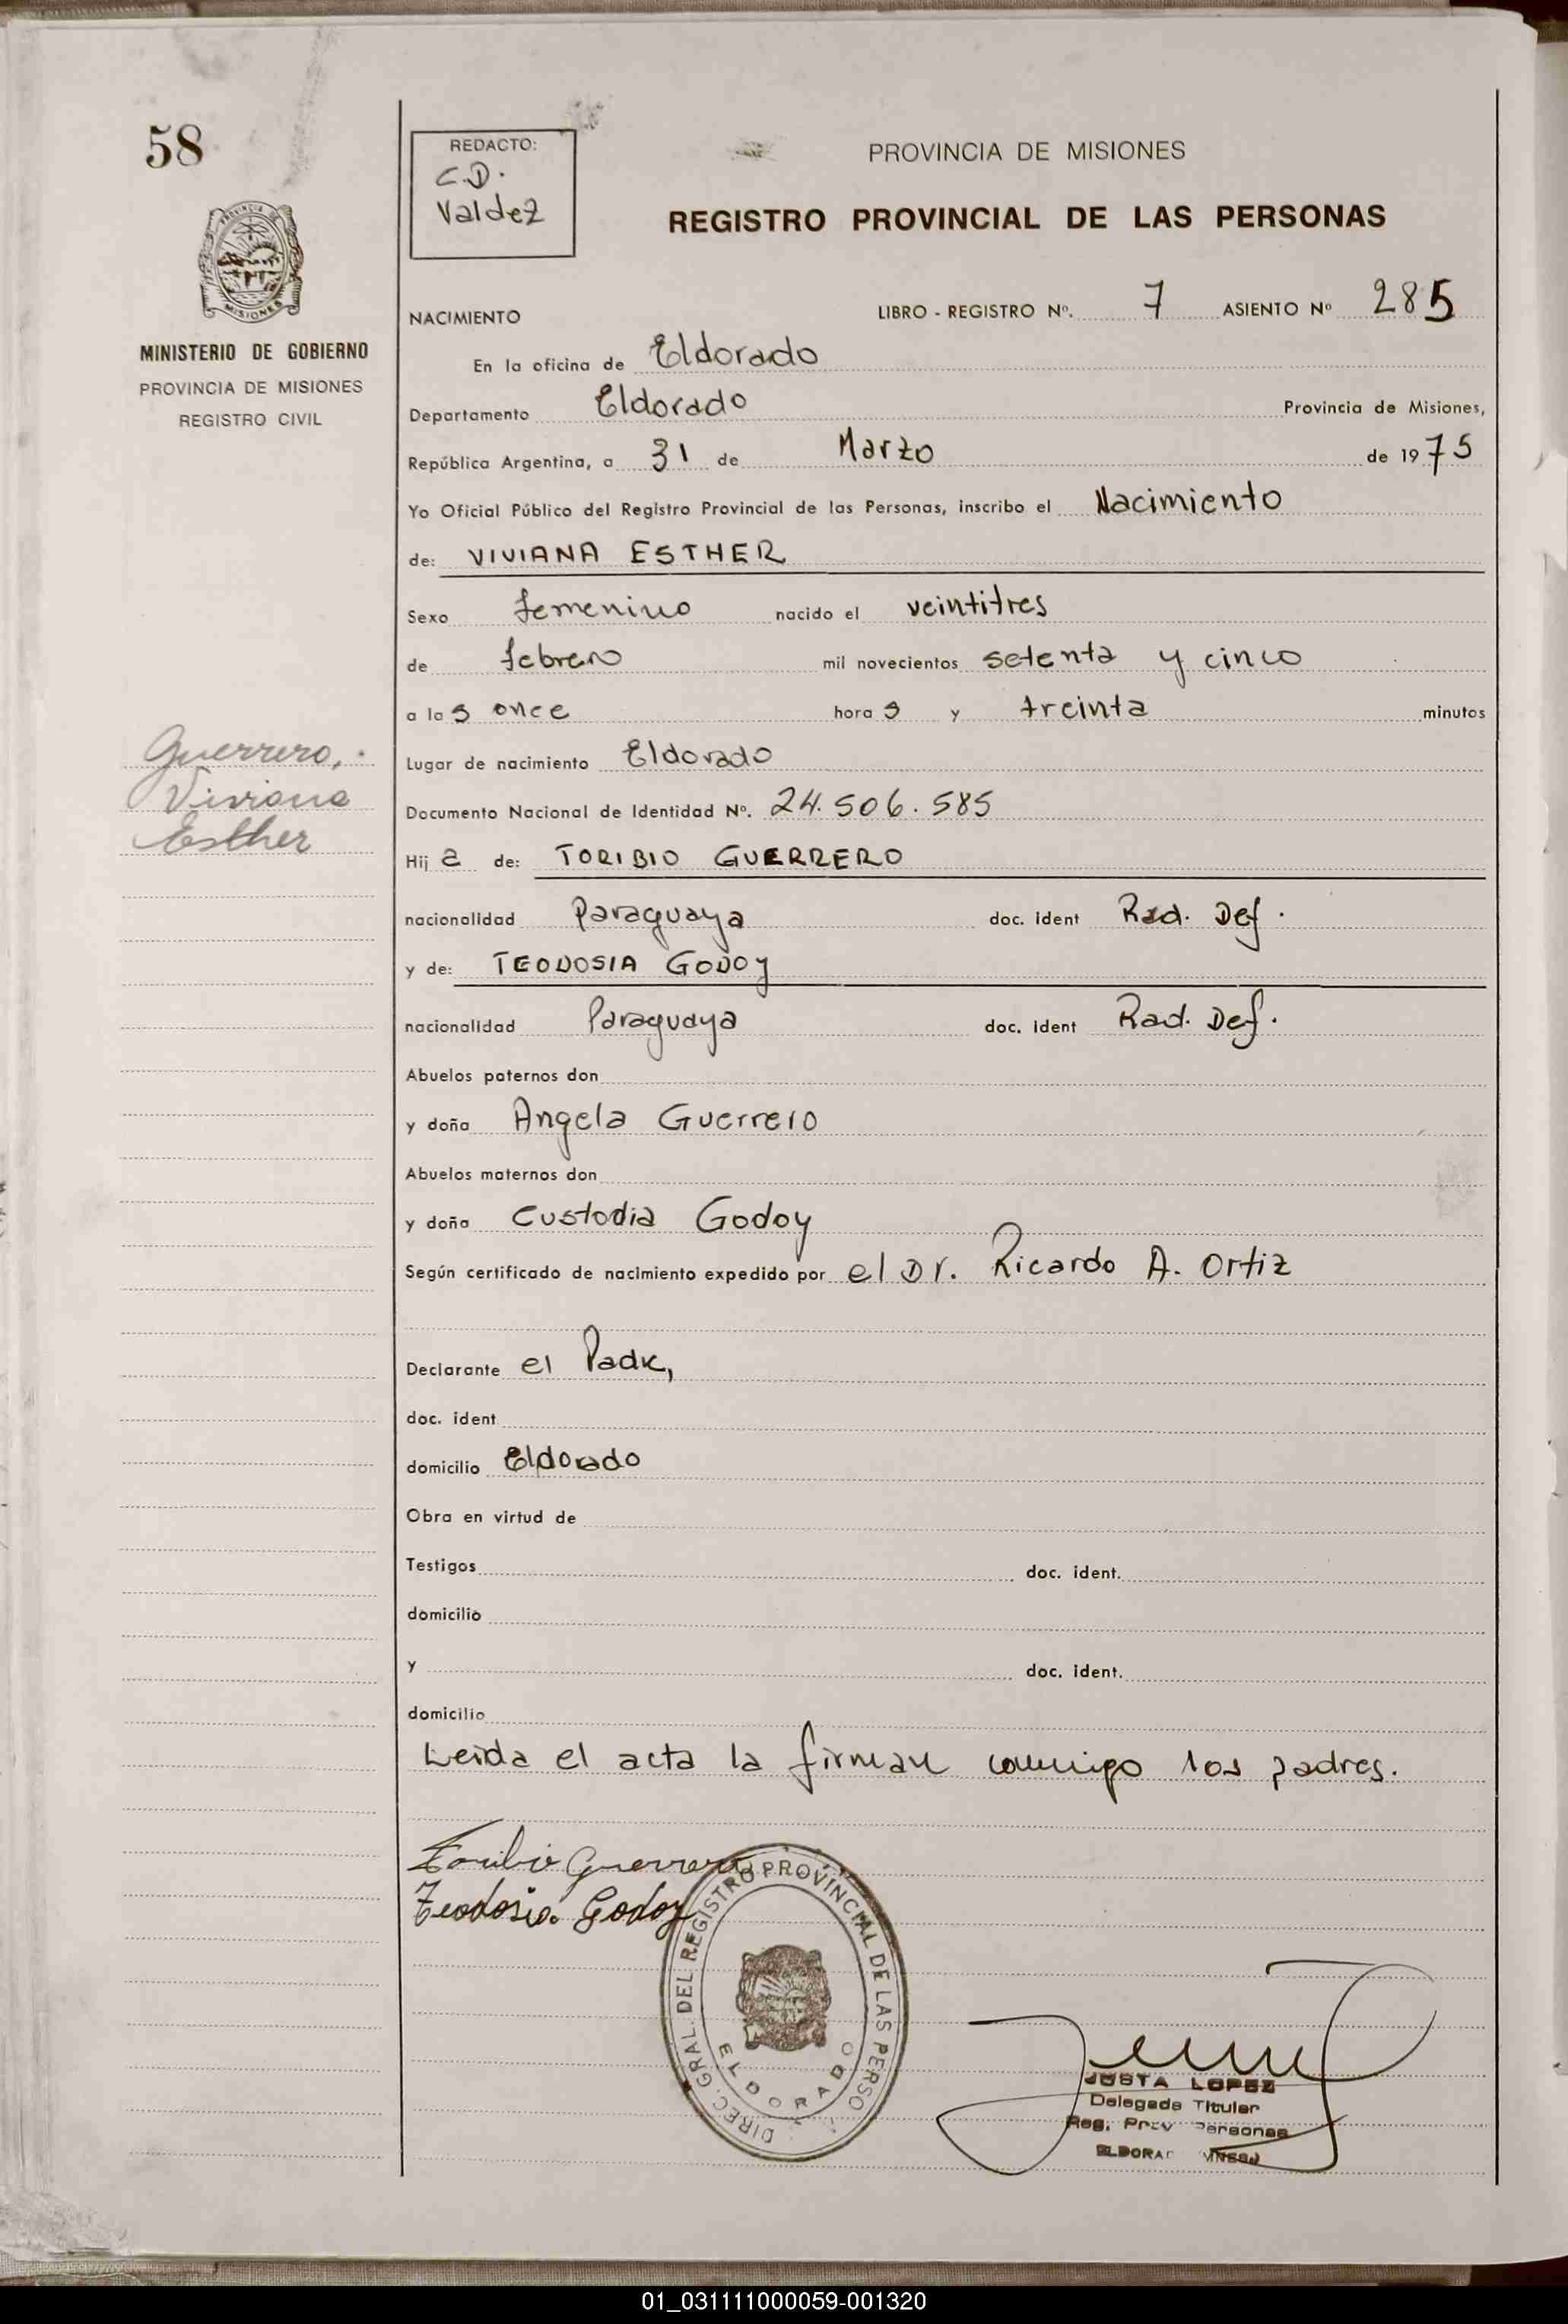 58
REDACTO:
C.D.
Valdez
PROVINCIA DE MISIONES
REGISTRO PROVINCIAL DE LAS PERSONAS
PROVINCIA DE
MISIONES
MINISTERIO DE GOBIERNO
PROVINCIA DE MISIONES
REGISTRO CIVIL
NACIMIENTO LIBRO - REGISTRO Nº. 7 ASIENTO Nº 285
En la oficina de Eldorado
Departamento Eldorado Provincia de Misiones,
República Argentina, a 31 de Marzo de 1975
Yo Oficial Público del Registro Provincial de las Personas, inscribo el Nacimiento
de: VIVIANA ESTHER
Sexo femenino nacido el veintitres
de febrero mil novecientos setenta y cinco
a las once horas y treinta minutos
Guerrero,
Viviana
Esther
Lugar de nacimiento Eldorado
Documento Nacional de Identidad Nº. 24.506.585
Hija de: TORIBIO GUERRERO
nacionalidad Paraguaya doc. ident Rad. Def.
y de: TEODOSIA GODOY
nacionalidad Paraguaya doc. ident Rad. Def.
Abuelos paternos don
y doña Angela Guerrero
Abuelos maternos don
y doña Custodia Godoy
Según certificado de nacimiento expedido por el Dr. Ricardo A. Ortiz
Declarante el Padre,
doc. ident
domicilio Eldorado
Obra en virtud de
Testigos doc. ident.
domicilio
y doc. ident.
domicilio
Leida el acta la firman conmigo los padres.
Toribio Guerrero
Teodosia Godoy
DIREC. GRAL. DEL REGISTRO PROVINCIAL DE LAS PERSO
ELDORADO
JUSTA LOPEZ
Delegada Titular
Reg. Prov Personas
01_031111000059-001320